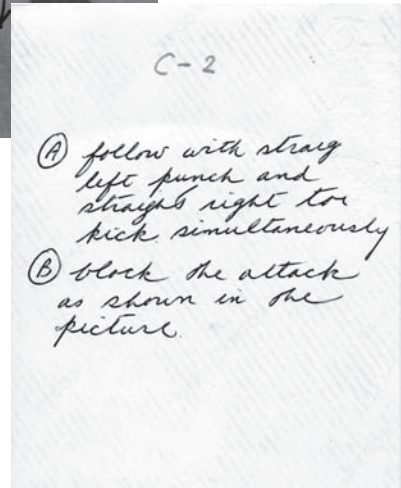 C-2
Ⓐ follow with straig
left punch and
straight right toe
kick simultaneously
Ⓑ block the attack
as shown in the
picture.